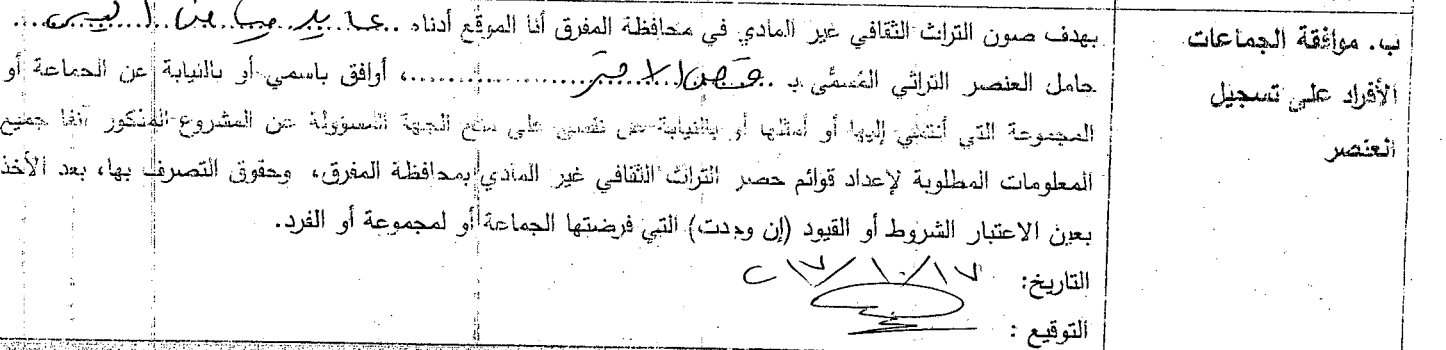 ب. موافقة الجماعات
الأفراد على تسجيل
العنصر
بهدف صون التراث الثقافي غير المادي في محافظة المفرق أنا الموقع أدناه
حامل العنصر التراثي المُسمَّى بـ ..................، أوافق باسمي أو بالنيابة عن الجماعة أو
المجموعة التي أنتمي إليها أو أمثلها أو بالنيابة عن نفسي على منح الجهة المسؤولة عن المشروع المذكور آنفا جميع
المعلومات المطلوبة لإعداد قوائم حصر التراث الثقافي غير المادي بمحافظة المفرق، وحقوق التصرف بها، بعد الأخذ
بعين الاعتبار الشروط أو القيود (إن وجدت) التي فرضتها الجماعة أو لمجموعة أو الفرد.
التاريخ:
التوقيع :